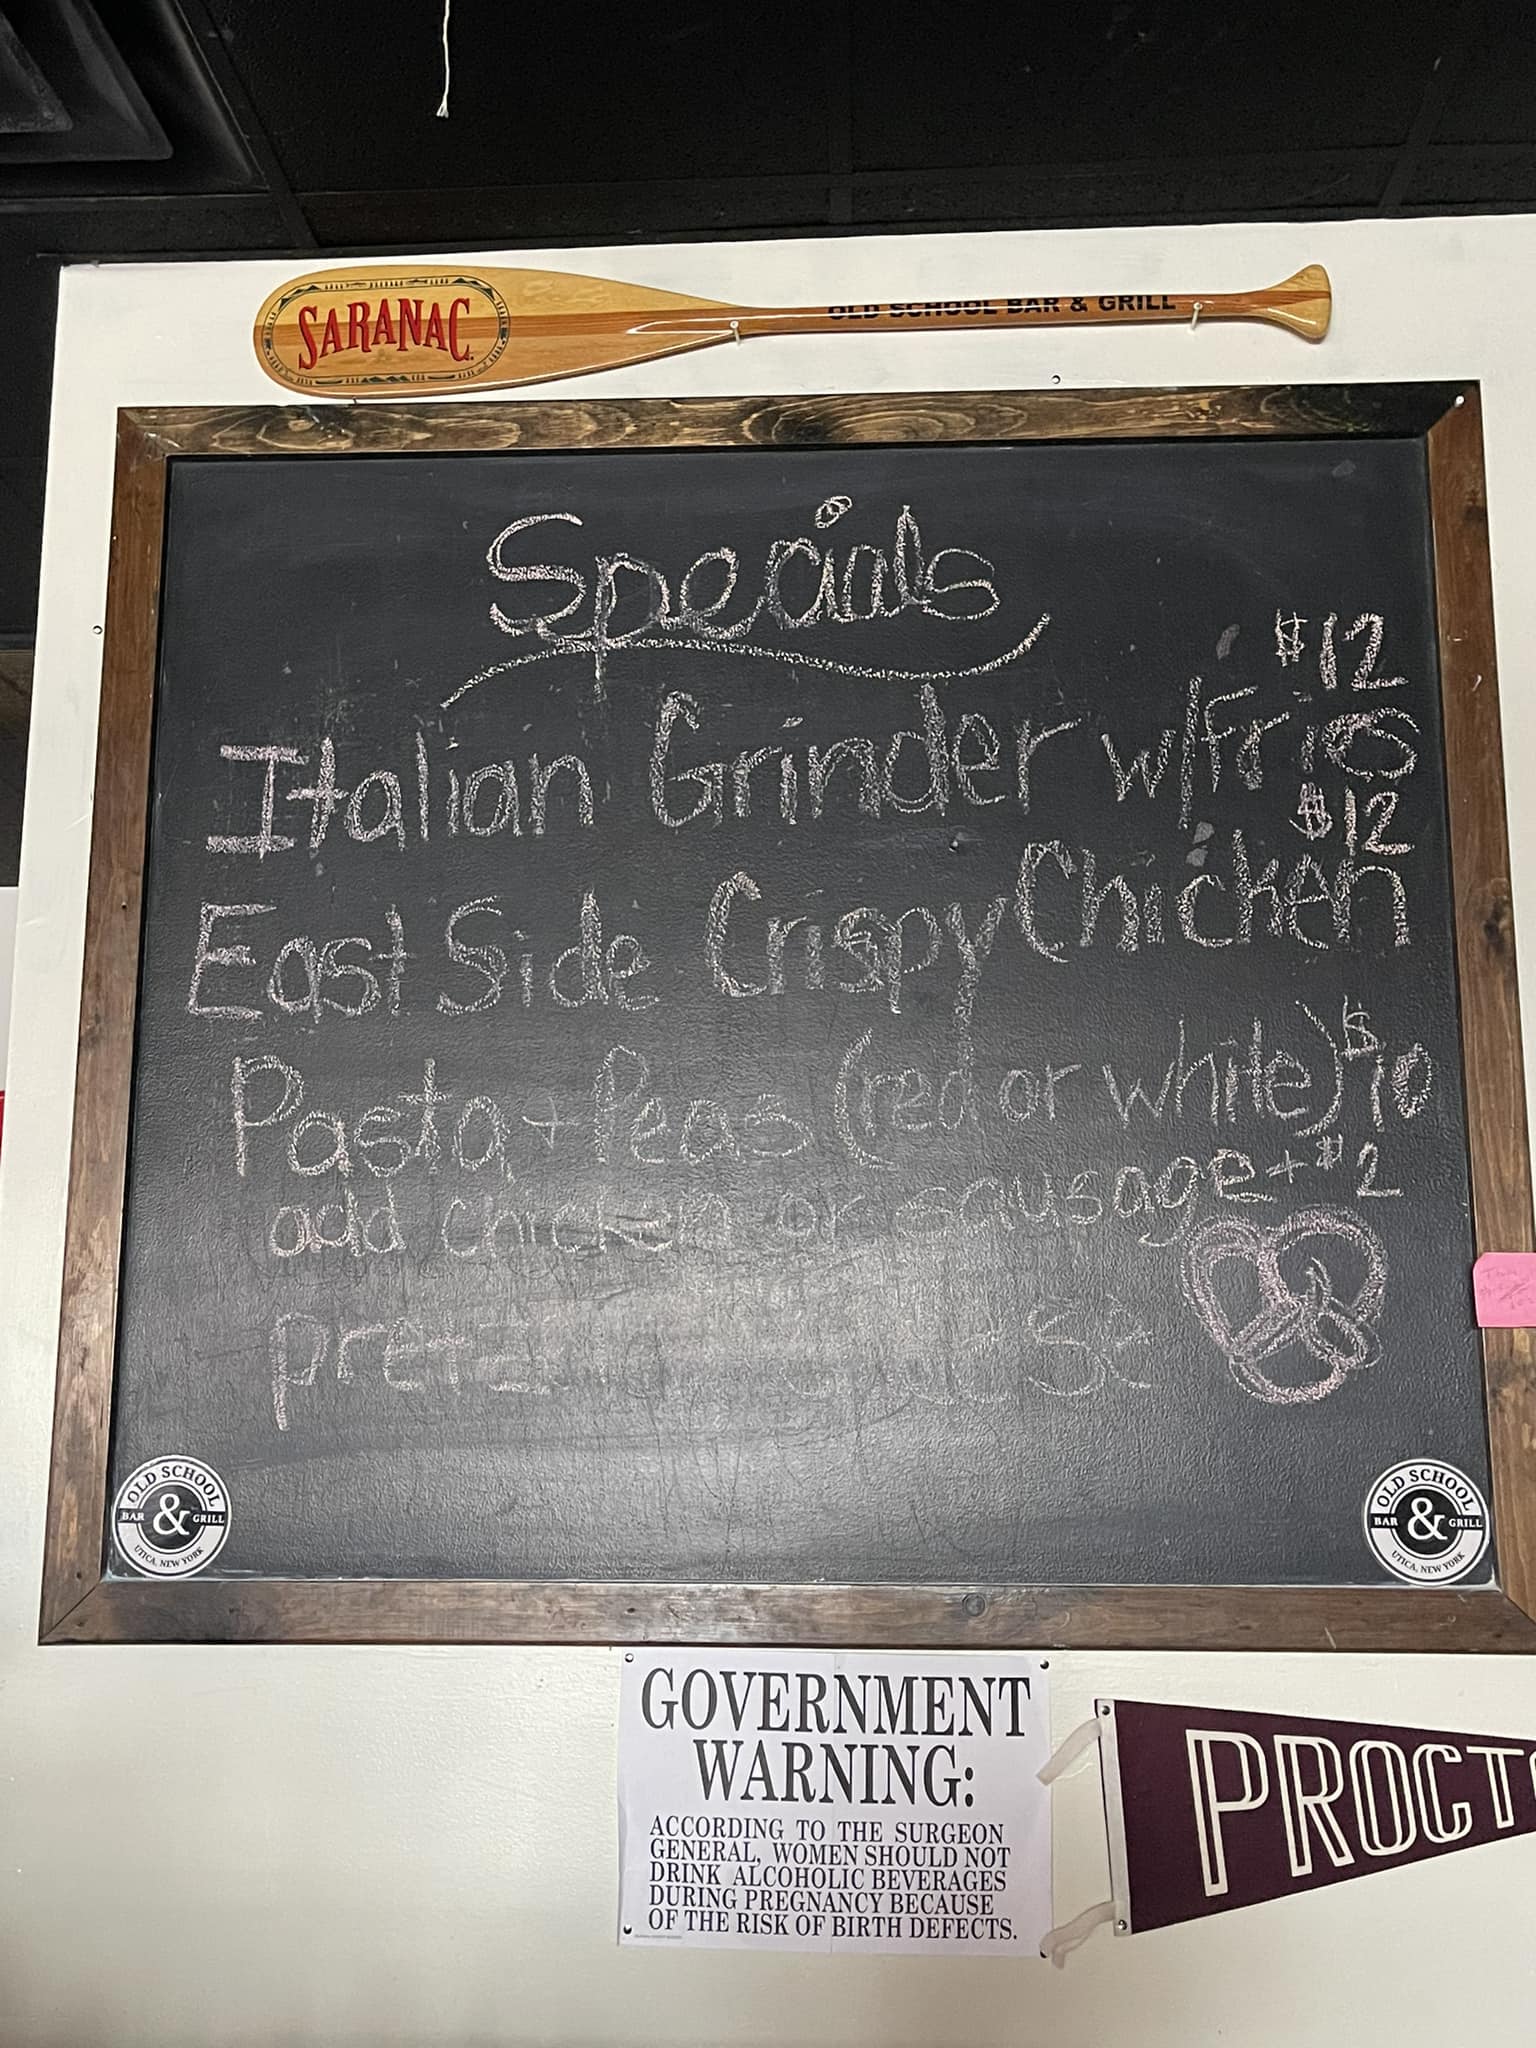 SARANAC
OLD SCHOOL BAR & GRILL
Specials
$12
Italian Grinder w/Fries
$12
East Side Crispy Chicken
Pasta + Peas (red or white) $10
add chicken or sausage + $2
OLD SCHOOL
BAR & GRILL
UTICA, NEW YORK
OLD SCHOOL
BAR & GRILL
UTICA, NEW YORK
GOVERNMENT
WARNING:
ACCORDING TO THE SURGEON
GENERAL, WOMEN SHOULD NOT
DRINK ALCOHOLIC BEVERAGES
DURING PREGNANCY BECAUSE
OF THE RISK OF BIRTH DEFECTS.
PROCT